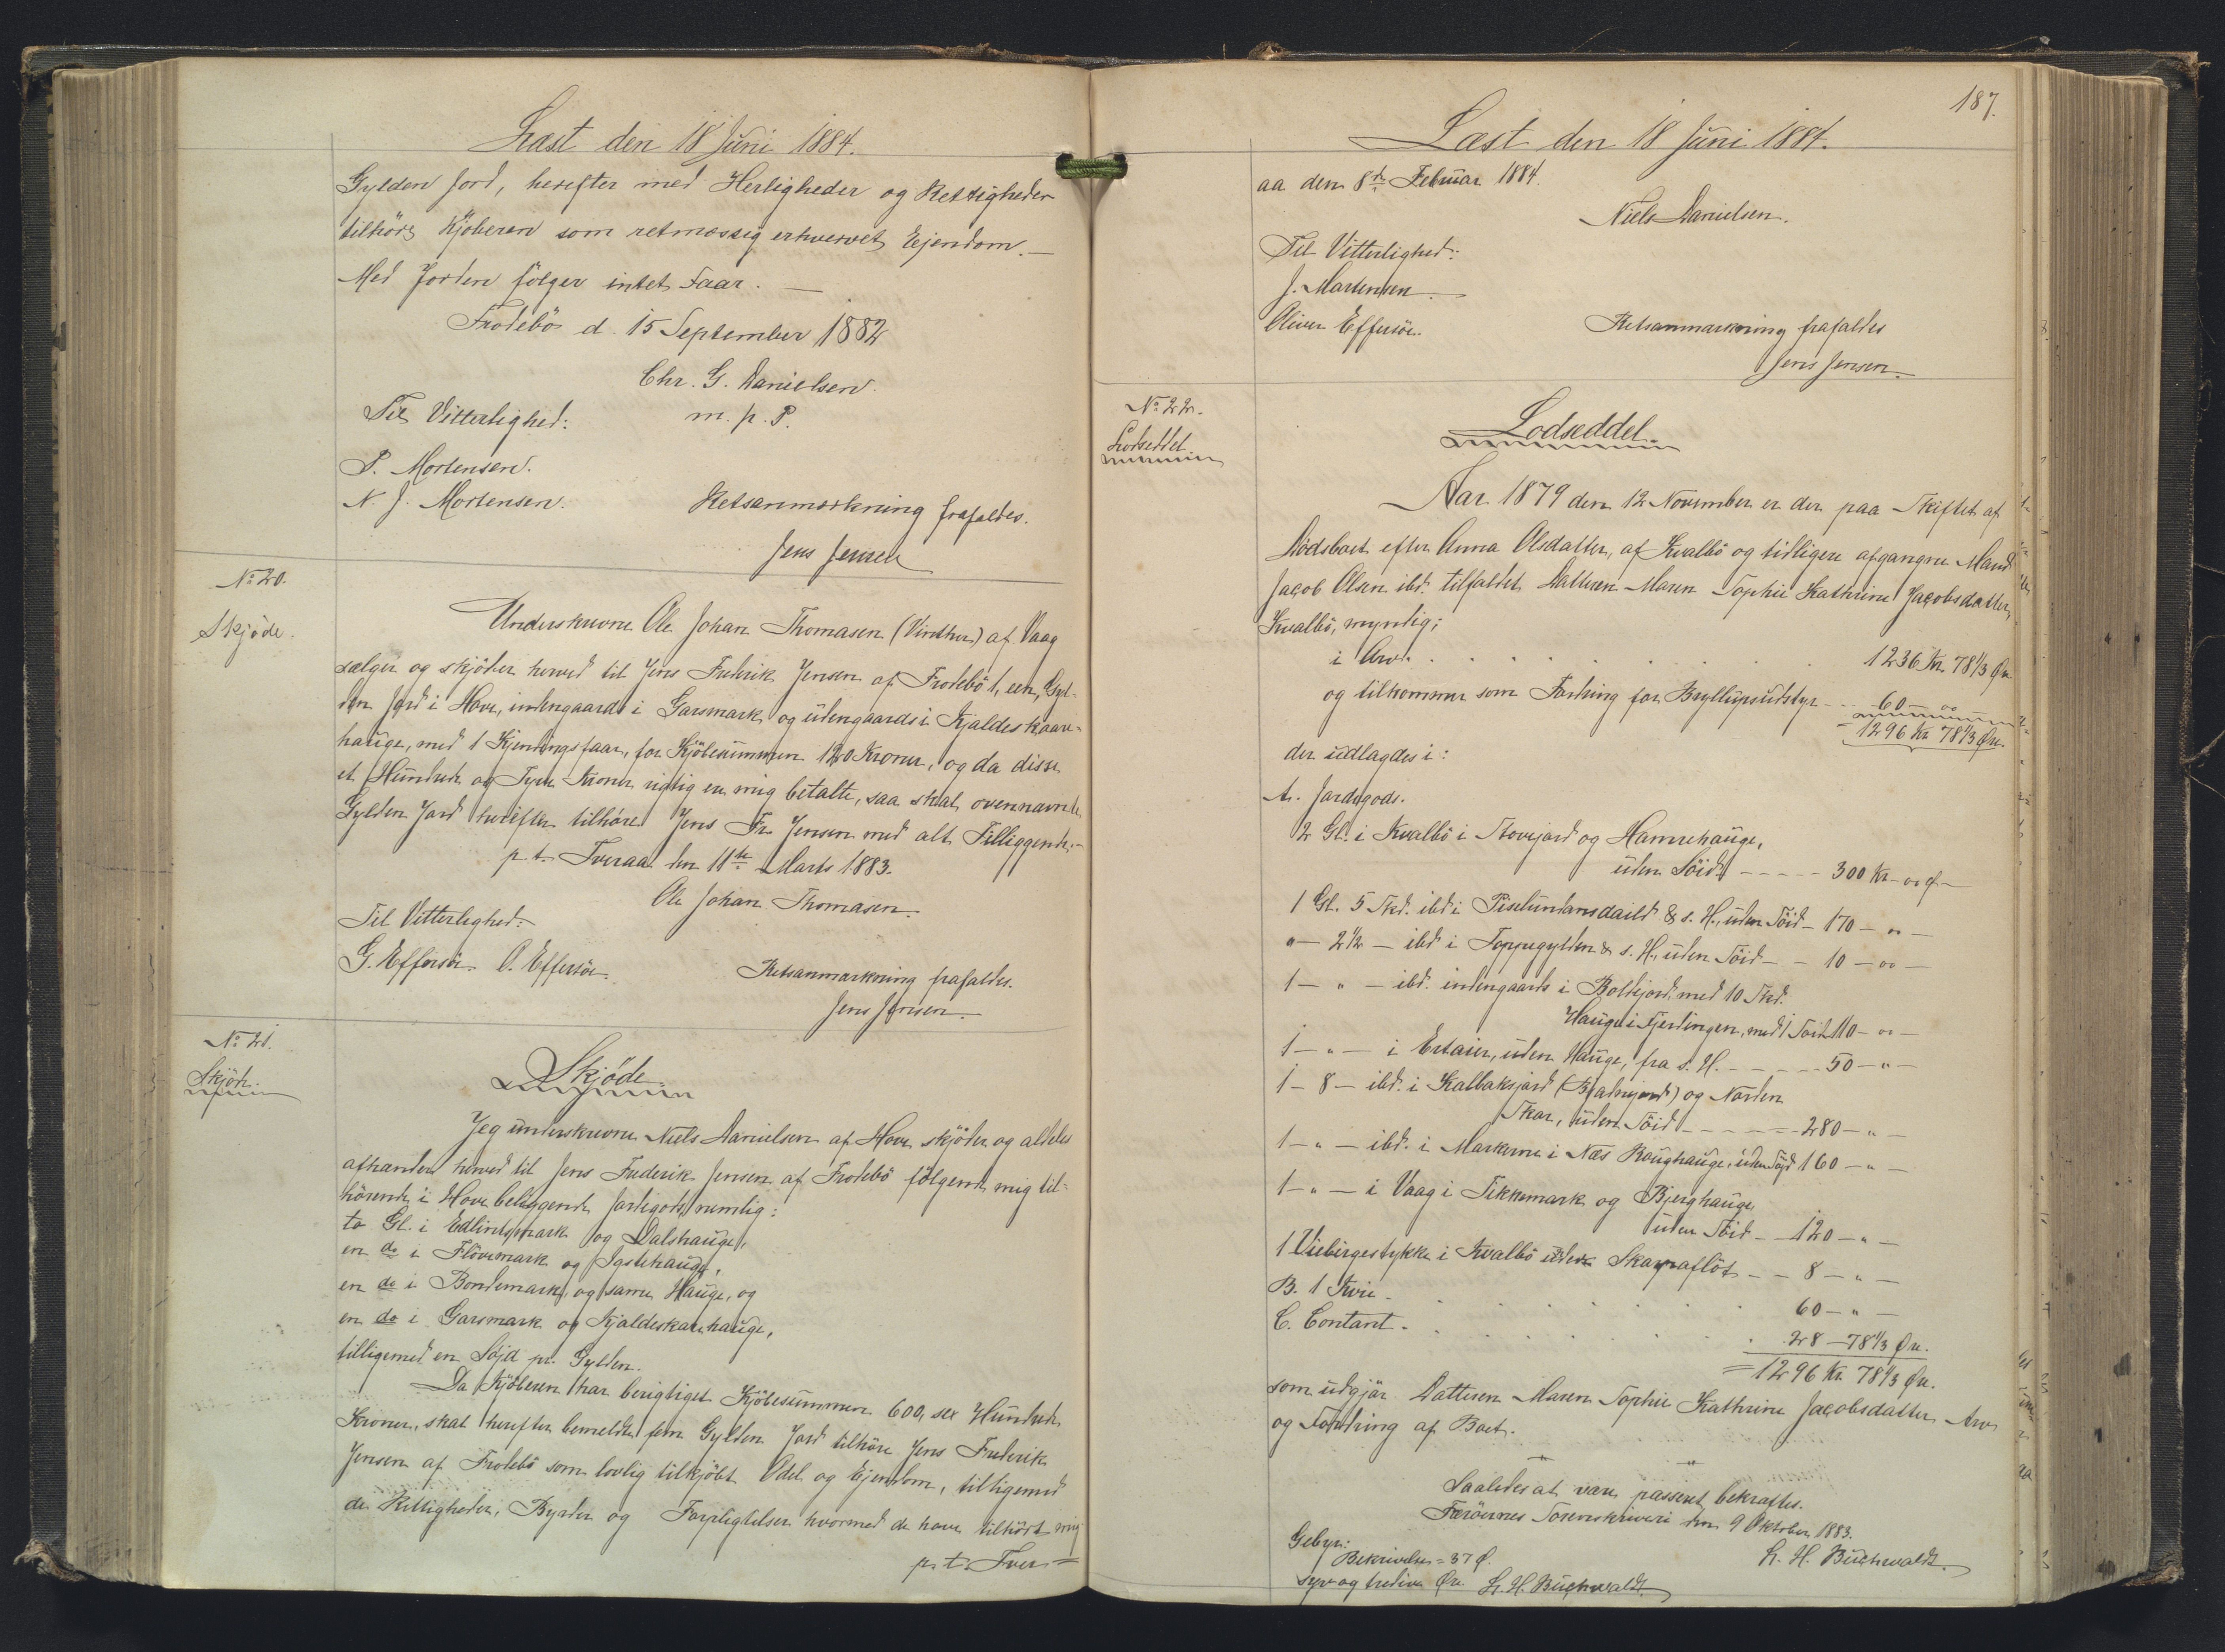 Læst den 18 Juni 1884.
Gylden Jord, herefter med Herligheder og Rettigheder
tilhöre Kjöberen som retmæssig erhvervet Ejendom. —
Med Jorden fölger intet Faar. —
Frodebö d. 15 September 1882
Chr. G. Danielsen.
m. p. P.
Til Vitterlighed:
P. Mortensen.
N. J. Mortensen.
Retsanmærkning frafaldes.
Jens Jensen
No 20.
Skjöde.
Underskrevne Ole Johan Thomasen (Vinther) af Vaag
sælger og skjöder herved til Jens Frederik Jensen af Frodebö 1, een, Gyl-
den Jord i Hove, indengaards i Garsmark og udengaards i Kjaldeskaare-
hauge, med 1 Kjendingsfaar, for Kjöbesummen 120 Kroner, og da disse
et Hundrede og Tyve Kroner rigtig er mig betalte, saa skal ovennævnte
Gylden Jord herefter tilhöre Jens Fr. Jensen med alt Tilliggende. -
p. t. Tveraa den 11te Marts 1883.
Ole Johan Thomasen.
Til Vitterlighed:
G. Effersöe. O. Effersöe.
Retsanmærkning frafaldes.
Jens Jensen.
No 21.
Skjöde.
Skjöde.
Jeg underskrevne Niels Danielsen af Hove skjöder og aldeles
afhænder herved til Jens Frederik Jensen af Frodebö fölgende mig til-
hörende i Hove beliggende Jordegods, nemlig:
to Gl. i Edlintsmark og Dalshauge,
en do i Flövemark og Igstehauge,
en do i Bondemark og samme Hauge, og
en do i Garsmark og Kjaldeskarehauge,
tilligemed en Söjd pr. Gylden.
Da Kjöberen har berigtiget Kjöbesummen 600, sex Hundrede
Kroner, skal herefter bemeldte fem Gylden Jord tilhöre Jens Frederik
Jensen af Frodebö som lovlig tilkjöbt Odel og Ejendom, tilligemed
de Rettigheder, Byrder og Forpligtelser hvormed de have tilhört mig
p. t. Tver=
187.
Læst den 18 Juni 1884.
aa den 8de Februar 1884.
Niels Danielsen.
Til Vitterlighed:
J. Mortensen.
Oliver Effersöe.
Retsanmærkning frafaldes
Jens Jensen.
No 22.
Lodseddel
Lodseddel.
Aar 1879 den 12 November er der paa Skiftet af
Dödsboet efter Anna Olsdatter, af Kvalbö og tidligere afgangne Mand
Jacob Olsen ibd. tilfaldet Datteren Maren Sophie Kathrine Jacobsdatter,
Kvalbö, myndig;
i Arv . . . . . . . 1236 Kr. 78 1/3 Öre
og tilkommer som Fordring for Bryllupsudstyr - - 60 — „
= 1296 Kr 78 1/3 Öre.
der udlagdes i:
A. Jordegods.
2 Gl. i Kvalbö i Stovejord og Hamrehauge,
uden Söid - - - - - 300 Kr - „ Ö -
1 Gl. 5 Skd. ibd. i Piselundansdaild & s. H., uden Söid - 170 - „ -
„ — 2 1/2 — ibd. i Toppugylden & s. H., uden Söid - - 10 - „ -
1 — „ — ibd. indengaards i Boldejord, med 10 Skd.
Hauge i Fjerdingen, med 1 Söid 110 - „ -
1 — „ — i Ertaier, uden Hauge, fra s. H. - - - - - 50 - „ -
1 - 8 - ibd. i Kalbaksjord og Norden
Skar, uden Söid - - - - - - 280 - „ -
1 — „ — ibd. i Markerne i Næs Roughauge, uden Söjd 160 - „ -
1 — „ — i Vaag i Tikkemark og Bjerghauge
uden Söid - - 120 - „ -
1 Uiebirgestykke i Kvalbö uden - - 8 - „ -
B. 1 Kvie . . . . . . . 60 - „ -
C. Contant . . . . . . . 28 - 78 1/3 Öre.
= 1296 Kr. 78 1/3 Öre.
som udgjör Datteren Maren Sophie Kathrine Jacobsdatters Arv
og Fordring af Boet.
Saaledes at være passeret, bekræftes.
Færöernes Sorenskriveri den 9 Oktober 1883.
L. H. Buchwaldt.
Gebyr:
Beskrivelse = 37 Ö.
syv og tredive Öre. L. H. Buchwaldt.